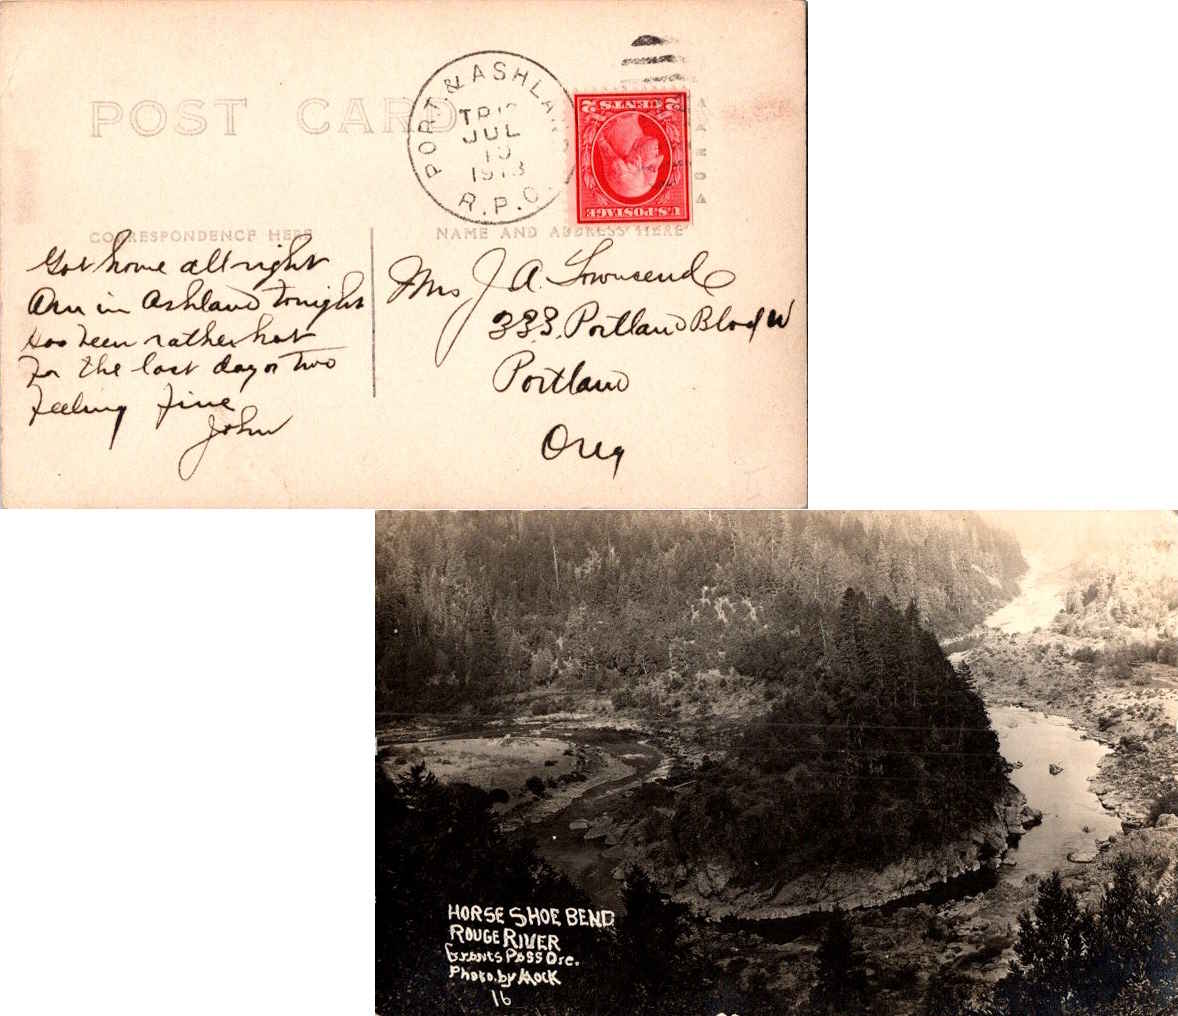 POST CARD
PORT. & ASHLAND
JUL
1913
R.P.O.
2 CENTS 2
U.S. POSTAGE
CORRESPONDENCE HERE
NAME AND ADDRESS HERE
Got home all right
Am in Ashland tonight
Has been rather hot
For the last day or two
Feeling fine
John
Mrs J. A. Townsend
333. Portland Blvd W
Portland
Oreg
HORSE SHOE BEND
ROUGE RIVER
Grants Pass Ore.
Photo. by Mock
16